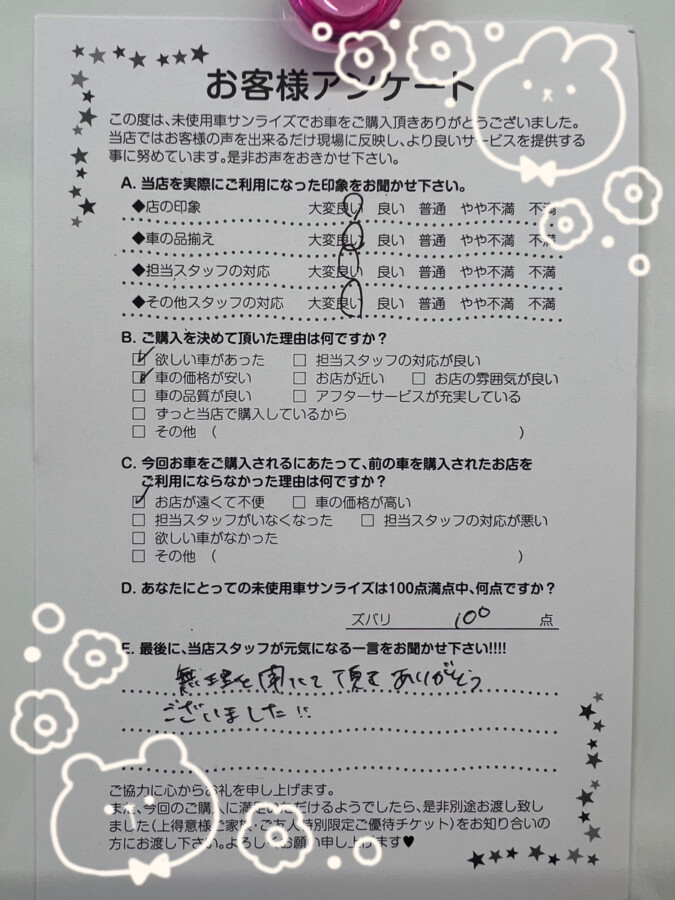 お客様アンケート
この度は、未使用車サンライズでお車をご購入頂きありがとうございました。
当店ではお客様の声を出来るだけ現場に反映し、より良いサービスを提供する
事に努めています。是非お声をおきかせ下さい。
A. 当店を実際にご利用になった印象をお聞かせ下さい。
◆店の印象 大変良い 良い 普通 やや不満 不満
◆車の品揃え 大変良い 良い 普通 やや不満 不満
◆担当スタッフの対応 大変良い 良い 普通 やや不満 不満
◆その他スタッフの対応 大変良い 良い 普通 やや不満 不満
B. ご購入を決めて頂いた理由は何ですか?
☑ 欲しい車があった □ 担当スタッフの対応が良い
☑ 車の価格が安い □ お店が近い □ お店の雰囲気が良い
□ 車の品質が良い □ アフターサービスが充実している
□ ずっと当店で購入しているから
□ その他 ( )
C. 今回お車をご購入されるにあたって、前の車を購入されたお店を
ご利用にならなかった理由は何ですか?
☑ お店が遠くて不便 □ 車の価格が高い
□ 担当スタッフがいなくなった □ 担当スタッフの対応が悪い
□ 欲しい車がなかった
□ その他 ( )
D. あなたにとっての未使用車サンライズは100点満点中、何点ですか?
ズバリ 100 点
E. 最後に、当店スタッフが元気になる一言をお聞かせ下さい!!!!
無理を聞いて頂き ありがとう
ございました!!
ご協力に心からお礼を申し上げます。
また、今回のご購入に満足いただけるようでしたら、是非別途お渡し致し
ました(上得意様ご家族・ご友人特別限定ご優待チケット)をお知り合いの
方にお渡し下さい。よろしくお願い申し上げます♥